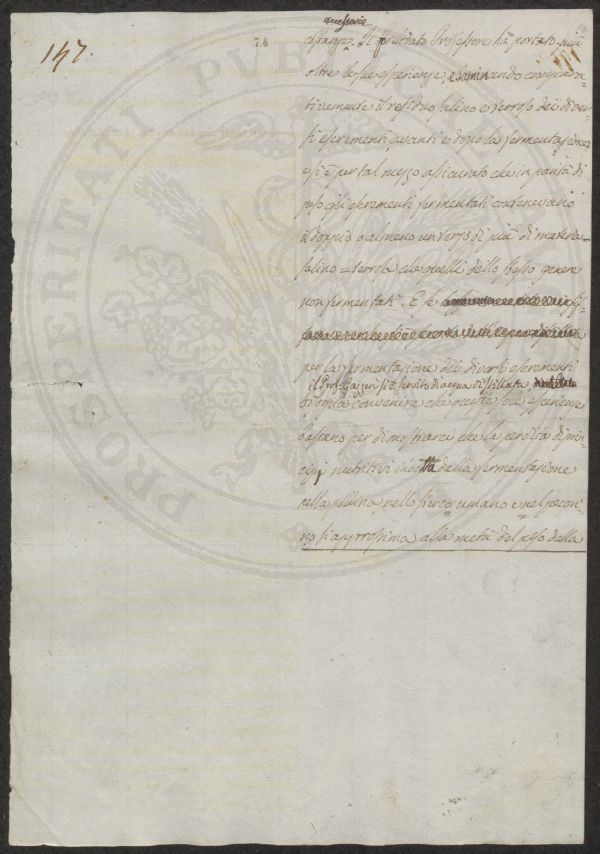 147.
76
accessorie
Il prelodato Professore hà portato più
oltre le sue esperienze, esaminando compara-
tivamente il residuo salino e terroso dei diver-
si escrementi avanti e dopo la fermentazione
e si è per tal mezzo assicurato che in parità di
peso gli escrementi fermentati contenevano
il doppio o almeno un terzo di più di materia
salino-terrosa che quelli dello stesso genere
non fermentati. E se
per la fermentazione dei diversi escrementi
il Prof. Gazzeri si è servito di acqua distillata
bisogna convenire che queste sole esperienze
bastano per dimostrare che la perdita di prin-
cipj nutritivi indotta dalla fermentazione
nella pollina nello sterco umano e nel pecori-
no si approssima alla metà del peso dalla
PROSPERITATI PVBLICAE